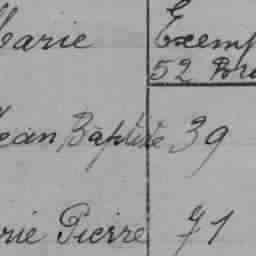 Marie Exemp
52 Bra
Jean Baptiste 39
rie Pierre 71